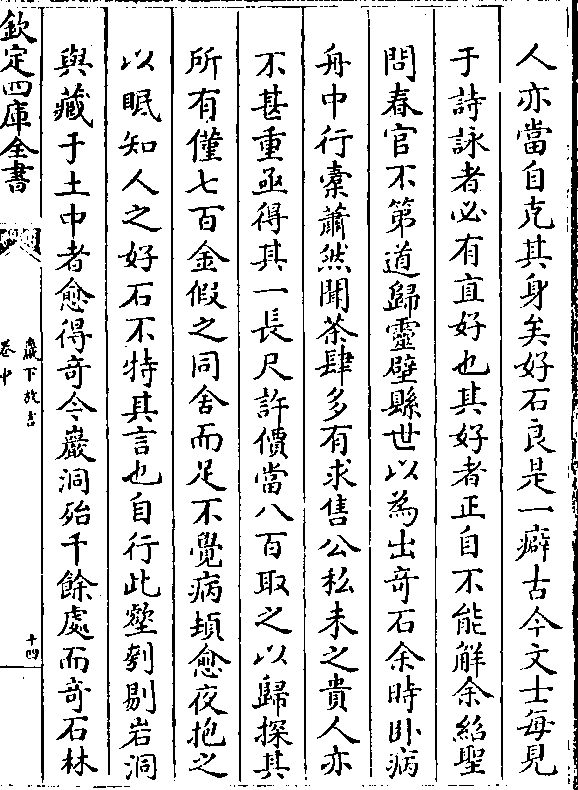 人亦當自克其身矣好石良是一癖古今文士每見
于詩詠者必有直好也其好者正自不能解余紹聖
問春官不第道歸靈壁縣世以為出奇石余時卧病
舟中行橐蕭然聞茶肆多有求售公私未之貴人亦
不甚重亟得其一長尺許價當八百取之以歸探其
所有僅七百金假之同舍而足不覺病頓愈夜抱之
以眠知人之好石不特其言也自行此壑刳剔岩洞
與藏于土中者愈得奇今巖洞殆千餘處而奇石林
欽定四庫全書
巖下放言
卷中
十四